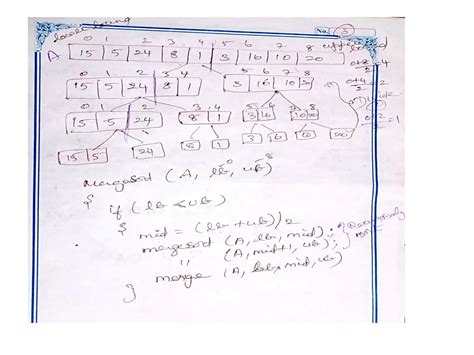 No. 3
0 1 2 3 4 5 6 7 8 upper
A 15 5 24 8 1 3 16 10 20
0+8/2=4
0 1 2 3 4 5 6 7 8
15 5 24 8 1 3 16 10 20
0+4/2=2
0 1 2 3 4 5 6 7 8
15 5 24 8 1 3 16 10 20
0+2/2=1
15 5 24 8 1 3 16 10 20
mergesort (A, lb, ub)
0 8
{ if (lb < ub)
{ mid = (lb + ub)/2
mergesort (A, lb, mid);
" (A, mid+1, ub);
merge (A, lb, mid, ub)
}